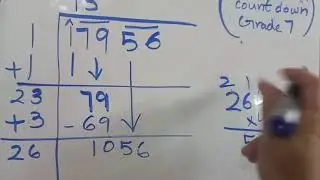 13
1 1 79 56
+1 1
23 79
+3 -69
26 1056
count down
Grade 7
2 1
26
×